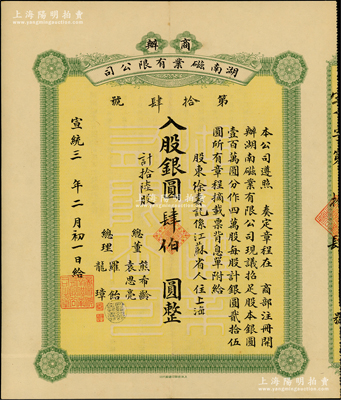 上海陽明拍賣
商辦
湖南磁業有限公司
第拾肆號
本公司遵照 奏定章程在 商部注冊開
辦湖南磁業有限公司現議招足股本銀圓
壹百萬圓分作四萬股每股計銀圓貳拾伍
圓所有章程摘載票背息單附給
股東徐 記係江蘇省人住上海
入股銀圓肆伯 圓整
計拾陸股
總董 熊希齡
袁思亮
總理 羅
龍璋
宣統三 年二月初一日給